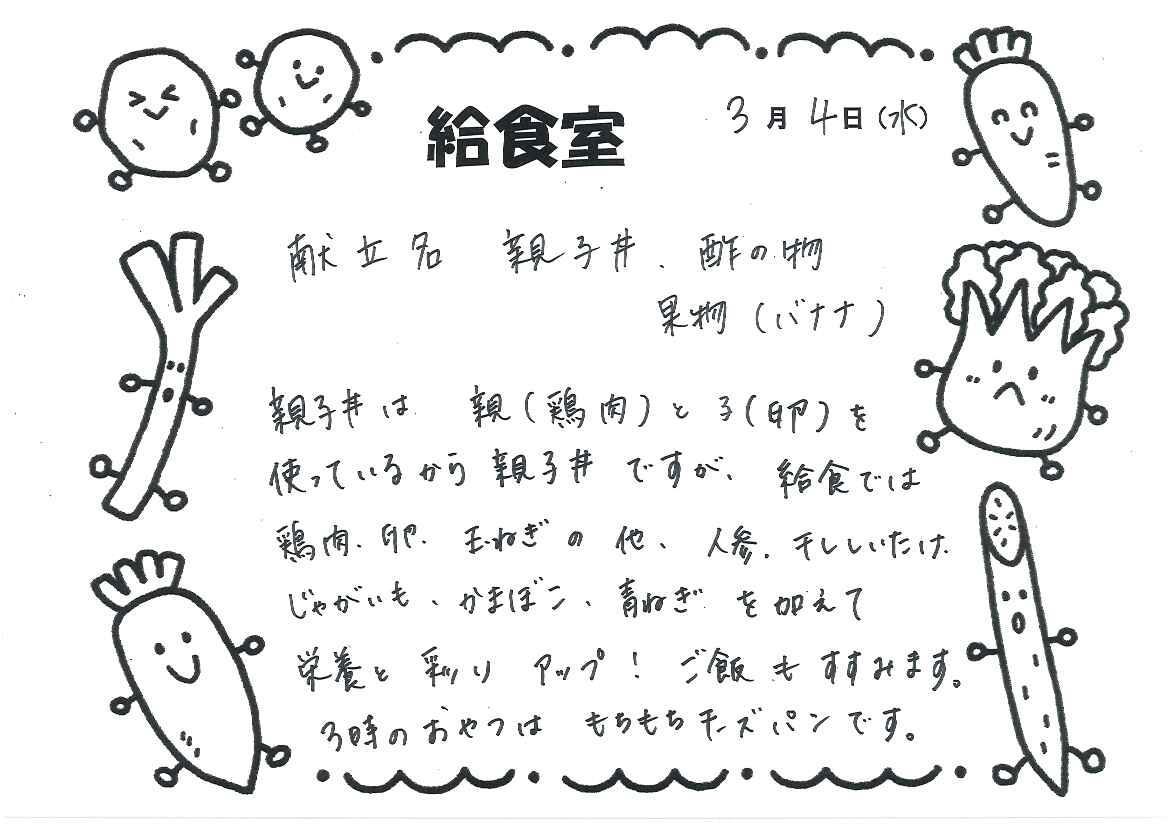 給食室
3月4日(水)
献立名 親子丼、酢の物
果物(バナナ)
親子丼は 親(鶏肉)と子(卵)を
使っているから親子丼ですが、給食では
鶏肉、卵、玉ねぎの他、人参、干ししいたけ、
じゃがいも、かまぼこ、青ねぎ を加えて
栄養と彩りアップ!ご飯もすすみます。
3時のおやつは もちもちチーズパンです。